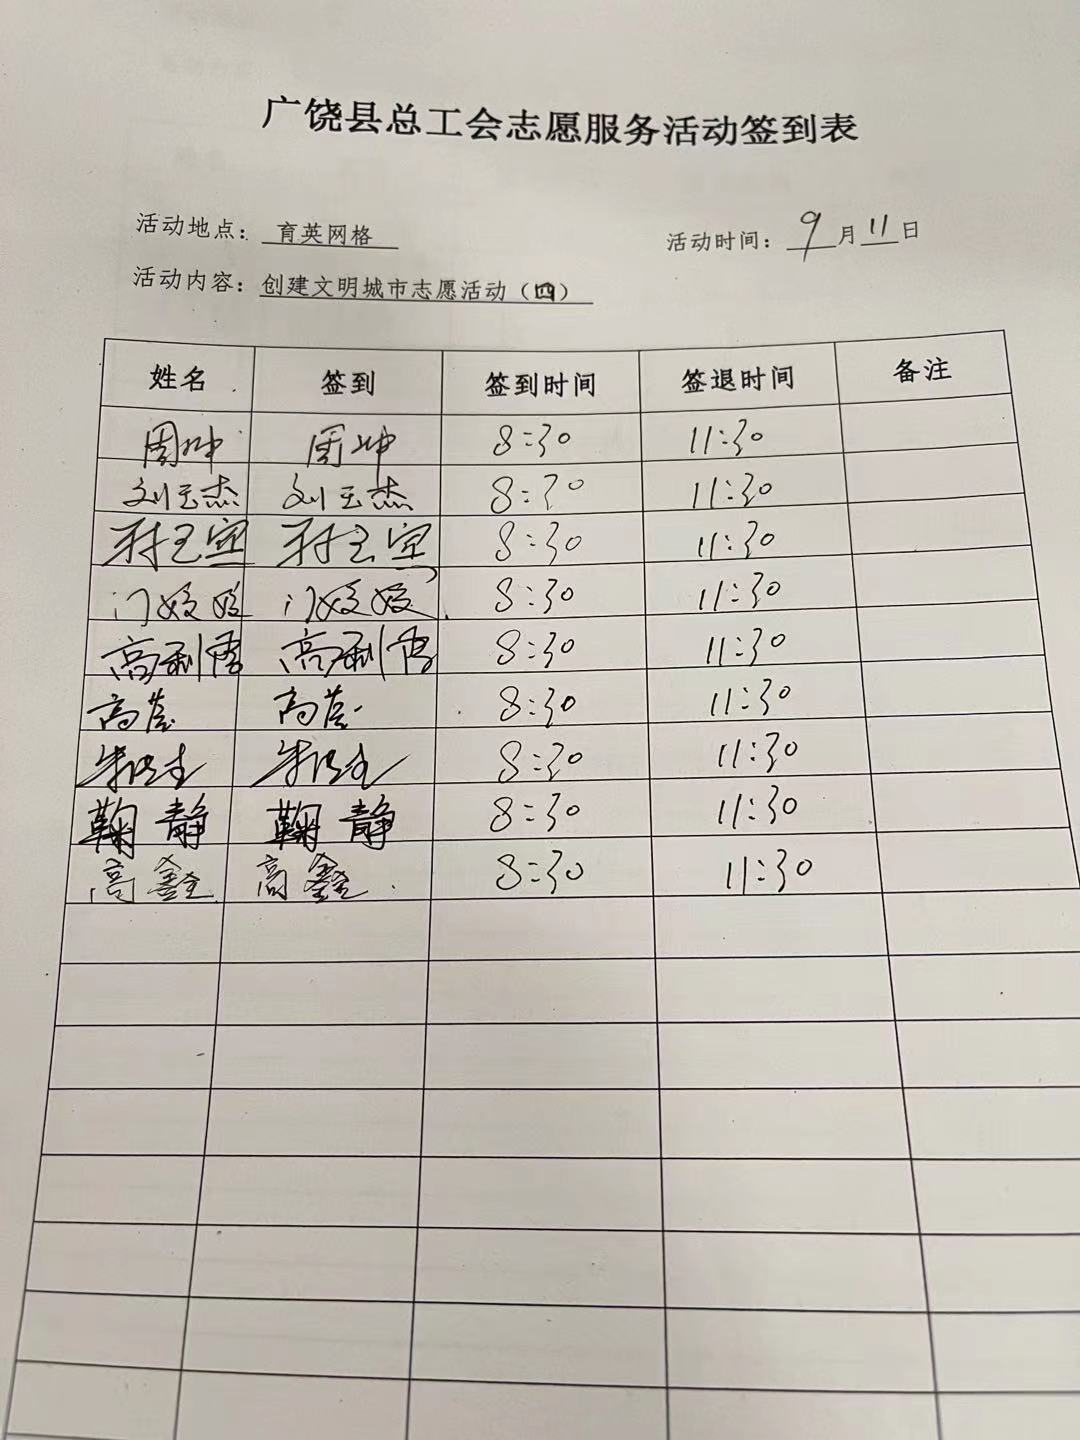 广饶县总工会志愿服务活动签到表
活动地点：育英网格 活动时间：9月11日
活动内容：创建文明城市志愿活动（四）
姓名 签到 签到时间 签退时间 备注
周坤 周坤 8:30 11:30
刘玉杰 刘玉杰 8:30 11:30
8:30 11:30
门姣姣 门姣姣 8:30 11:30
高利 高利 8:30 11:30
高 高 8:30 11:30
8:30 11:30
鞠静 鞠静 8:30 11:30
高鑫 高鑫 8:30 11:30